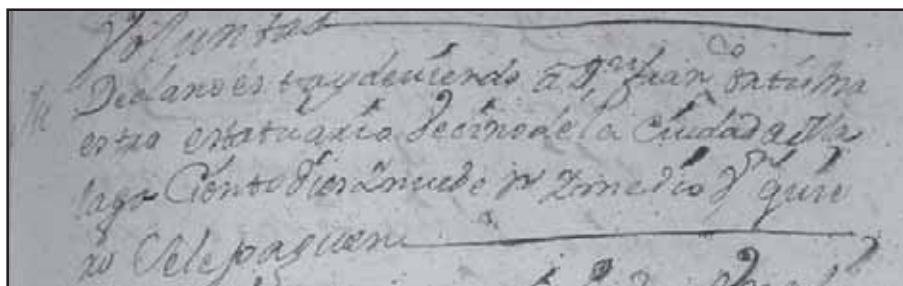 Voluntad
It Declaro estoy deviendo a Dn Franco Ortiz Ma
estro estatuario Vecino de la Ciudad de Ma
laga Ciento diez Y nuebe rs Y medio Vn quie
ro Se le paguen